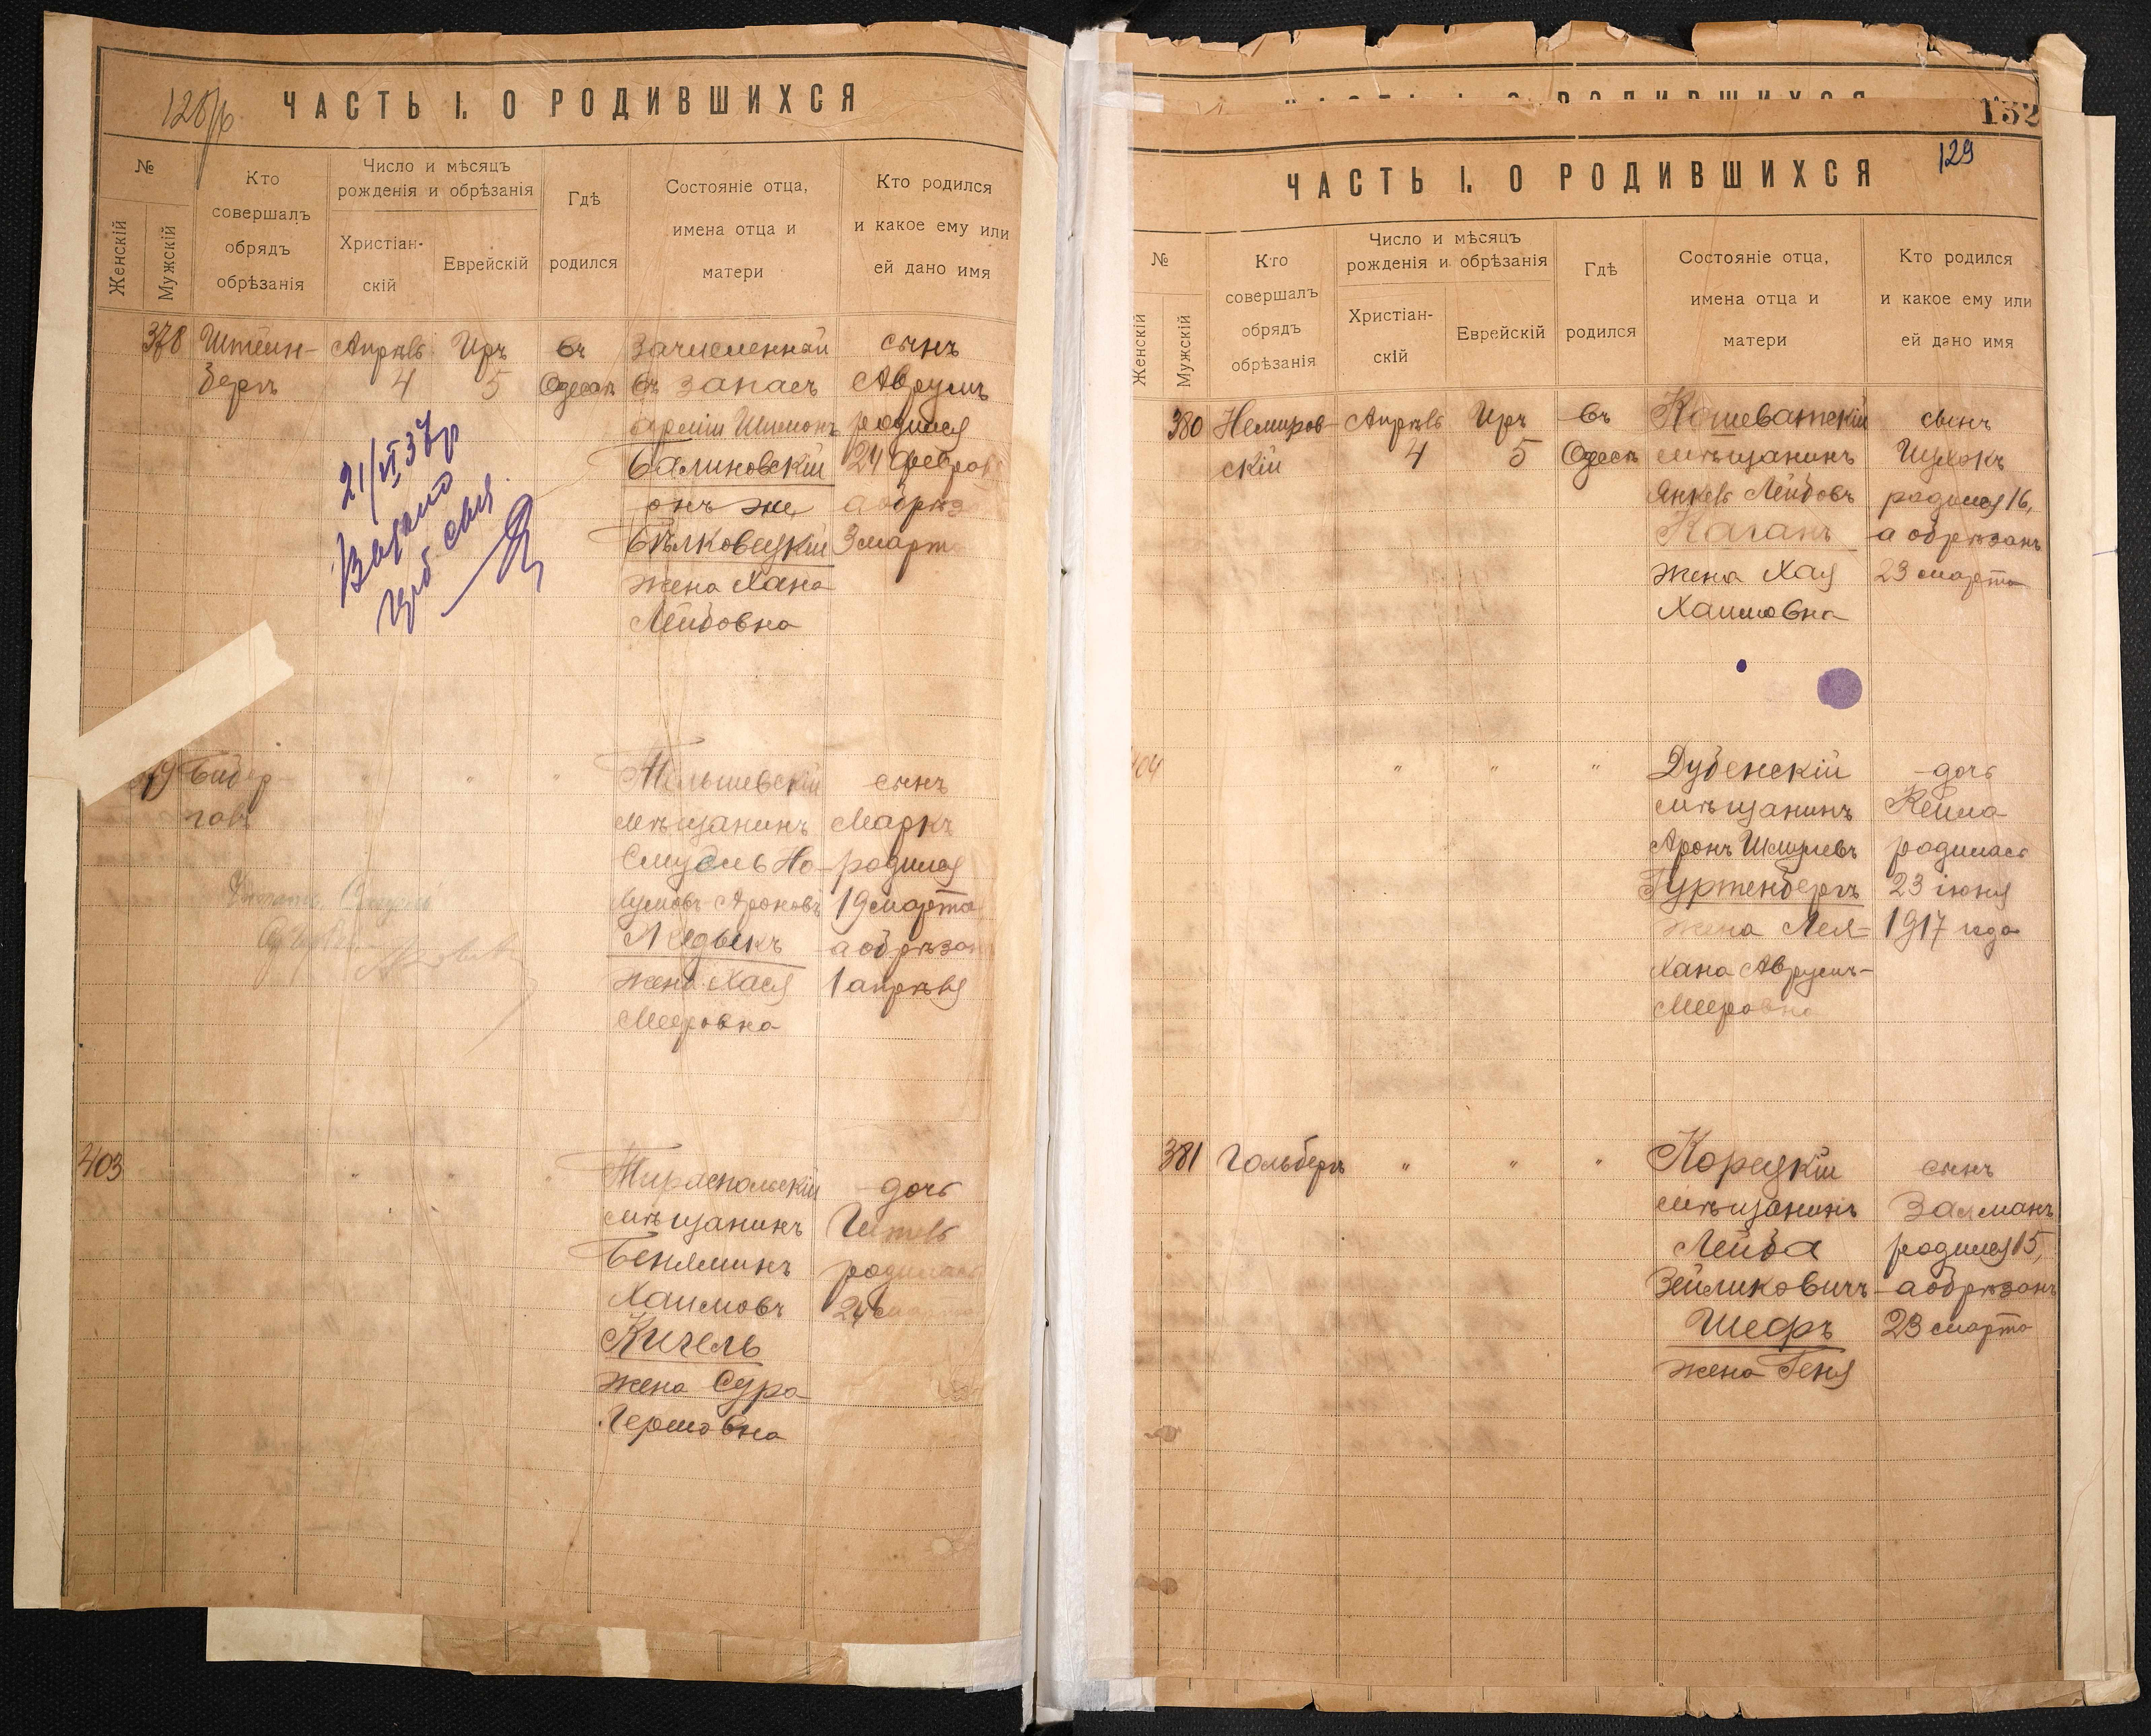 128/р
ЧАСТЬ I. О РОДИВШИХСЯ
№
Женскій
Мужскій
Кто
совершалъ
обрядъ
обрѣзанія
Число и мѣсяцъ
рожденія и обрѣзанія
Христіан-
скій
Еврейскій
Гдѣ
родился
Состояніе отца,
имена отца и
матери
Кто родился
и какое ему или
ей дано имя
378
Штейн-
бергъ
Апрѣль
4
Іиръ
5
въ
Одессѣ
Зачисленный
въ запасъ
арміи Шимонъ
Балиновскій
онъ же
Бѣлковецкій
жена Хана
Лейбовна
сынъ
Аврумъ
родился
24 феврал
а обрѣз
3 марта
21/VI 37 р
Видано
сыл
79
Бидер-
"
"
"
шевскій
мѣщанинъ
Смуль Но-
хумовъ-Ароновъ
Медыкъ
жена Хася
Мееровна
сынъ
Маркъ
родился
19 марта
а обрѣзан
1 апрѣля
403
"
"
"
Тираспольскій
мѣщанинъ
Беняминъ
Хаимовъ
Кигель
жена Сура
Гершовна
дочь
Гитль
родилась
24 марта
152
129
ЧАСТЬ I. О РОДИВШИХСЯ
№
Женскій
Мужскій
Кто
совершалъ
обрядъ
обрѣзанія
Число и мѣсяцъ
рожденія и обрѣзанія
Христіан-
скій
Еврейскій
Гдѣ
родился
Состояніе отца,
имена отца и
матери
Кто родился
и какое ему или
ей дано имя
380
Немиров-
скій
Апрѣль
4
Іиръ
5
въ
Одессѣ
Кошеватскій
мѣщанинъ
Янкель Лейбовъ
Каганъ
жена Хая
Хаимовна
сынъ
Ицхокъ
родился 16,
а обрѣзанъ
23 марта
404
"
"
"
Дубенскій
мѣщанинъ
Аронъ Шмулевъ
Гуртенбергъ
жена Лея-
Хана Аврумъ-
Мееровна
дочь
Кейла
родилась
23 іюня
1917 года
381
Гольбергъ
"
"
"
Корецкій
мѣщанинъ
Лейба
Зейликовичъ
Шефъ
жена Геня
сынъ
Залманъ
родился 15,
а обрѣзанъ
23 марта